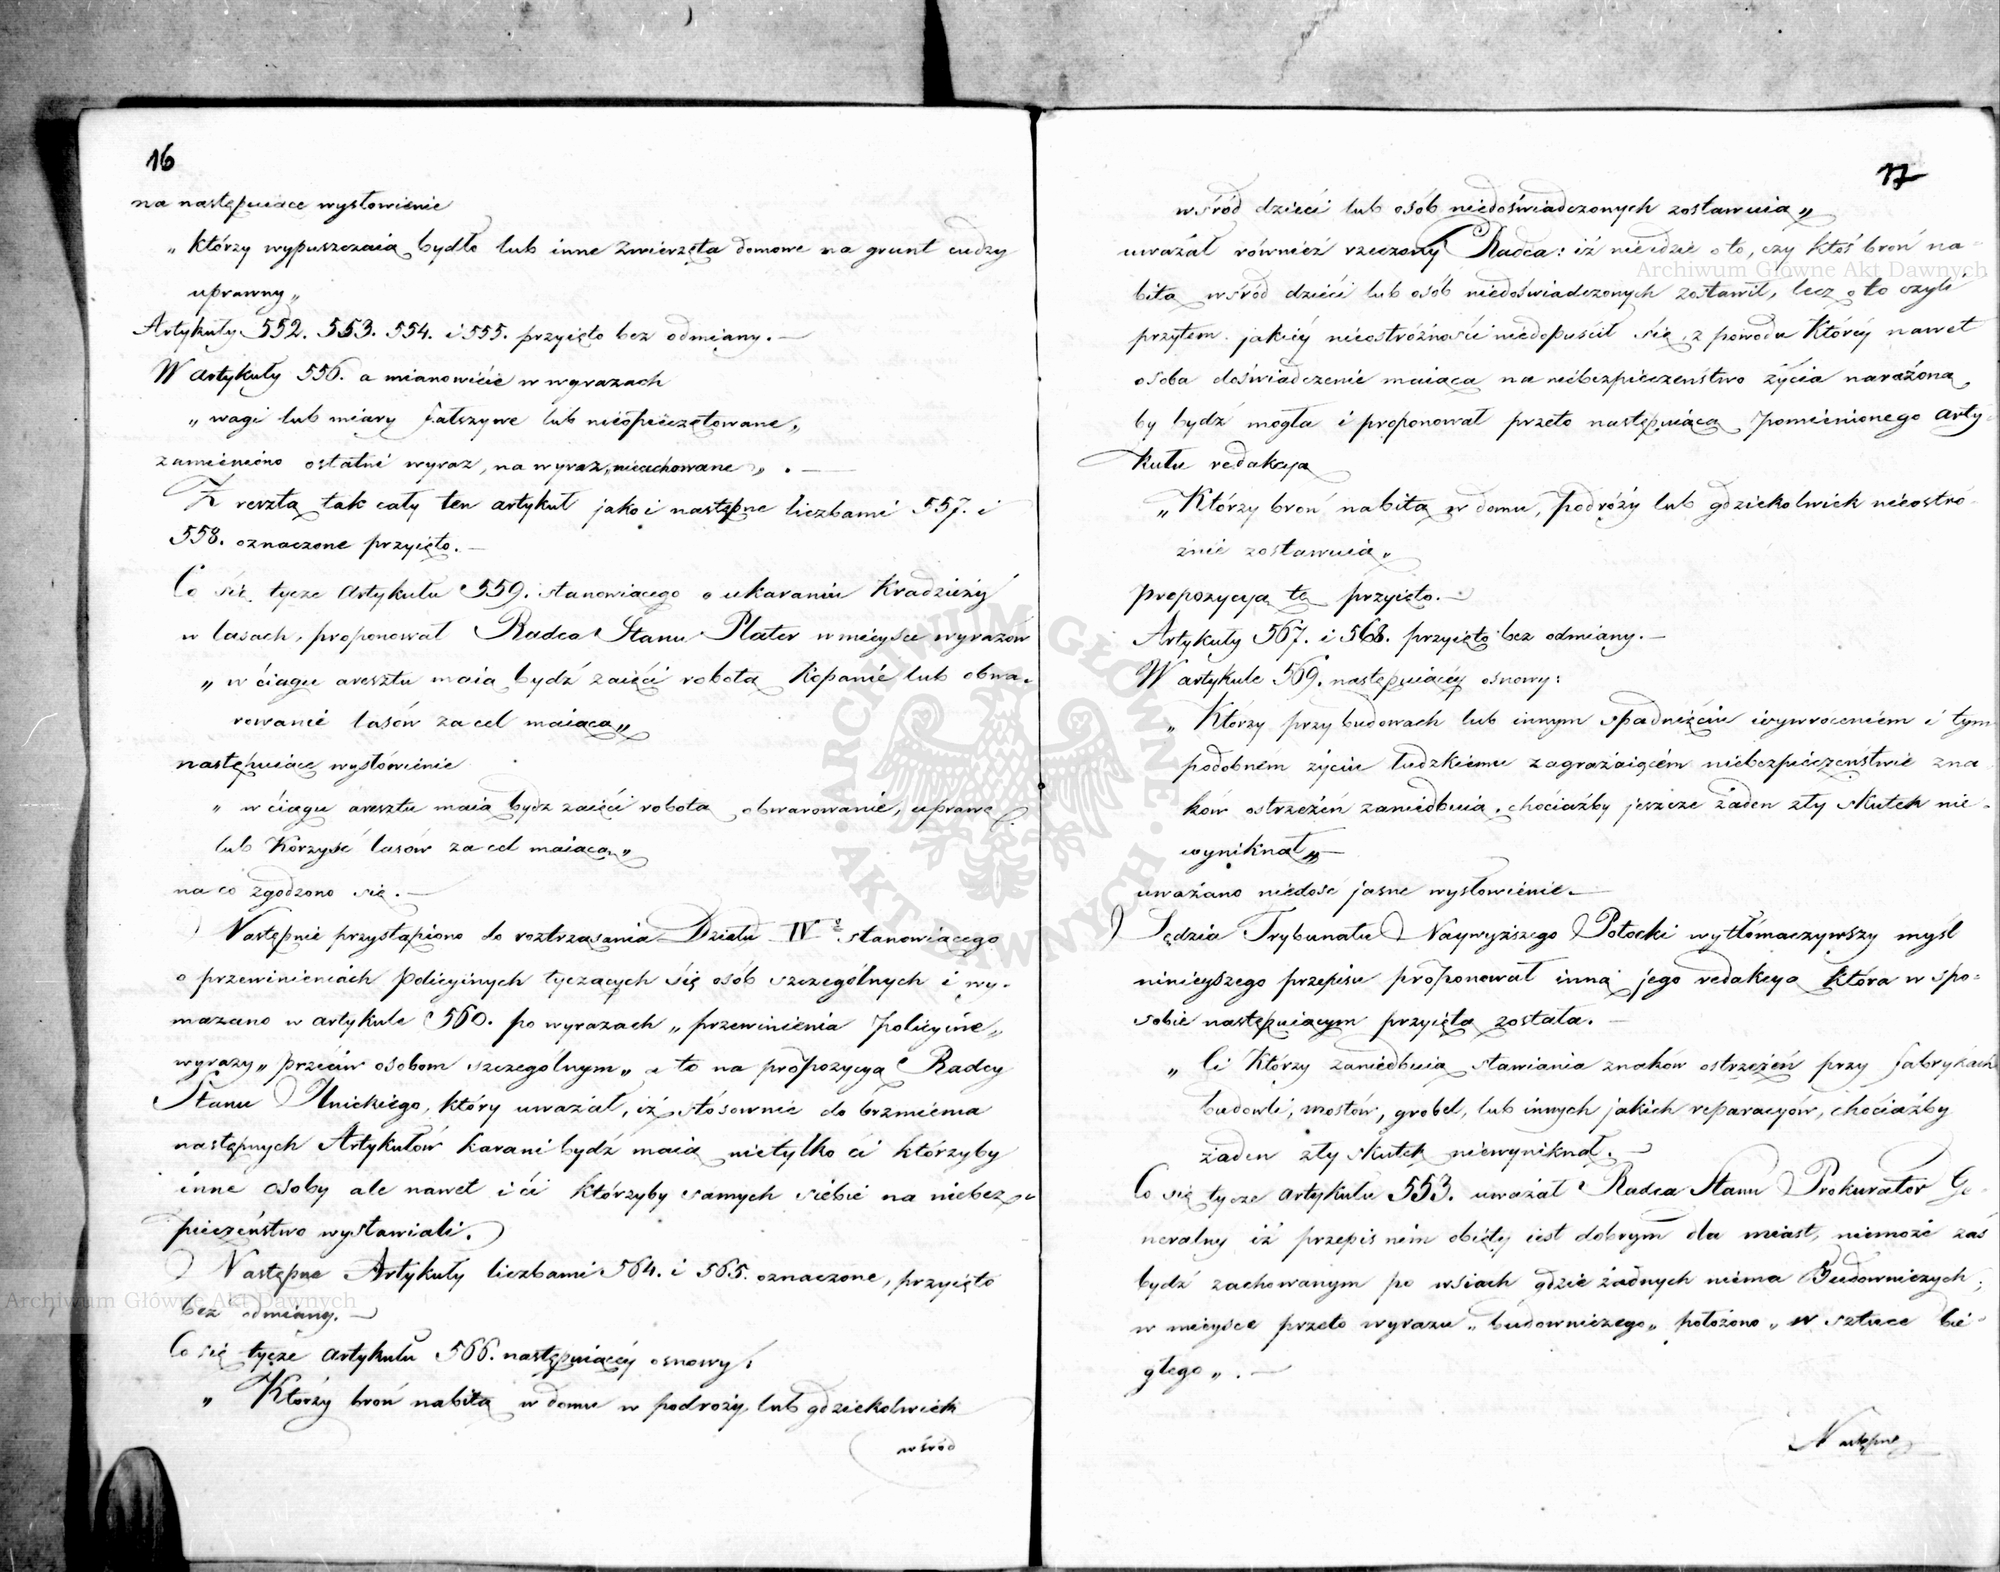 16
na następuiące wysłowienie
„ którzy wypuszczaią bydło lub inne zwierzęta domowe na grunt cudzy
uprawny „
Artykuły 552. 553. 554. i 555. przyięto bez odmiany. —
W artykuły 556. a mianowicie w wyrazach
„ wagi lub miary fałszywe lub nieopieczętowane „
zamieniono ostatni wyraz, na wyraz „ niecechowane „ . —
Z resztą tak cały ten artykuł jako i następne liczbami 557. i
558. oznaczone przyięto. —
Co się tycze artykułu 559. stanowiącego o ukaraniu kradzieży
w lasach, proponował Radca Stanu Plater w mieysce wyrazów
„ w ciągu aresztu maią bydź zaięci robotą kopanie lub obwa-
rowanie lasów za cel maiącą „
następuiące wysłowienie
„ w ciągu aresztu maią bydz zaięci robotą obwarowanie, uprawę
lub korzyść lasów za cel maiącą „
na co zgodzono się. —
Następnie przystąpiono do roztrząsania Działu IVº stanowiącego
o przewinieniach policyinych tyczących się osób szczególnych i wy-
mazano w artykule 560. po wyrazach „ przewinienia policyine „
wyrazy „ przeciw osobom szczególnym „ a to na propozycyą Radcy
Stanu Hnickiego, który uważał, iż stósownie do brzmienia
następnych Artykułów karani bydź maią nietylko ci którzyby
inne osoby ale nawet i ci którzyby samych siebie na niebez-
pieczeństwo wystawiali.
Następne Artykuły liczbami 564. i 565. oznaczone, przyięto
bez odmiany. —
Co się tycze artykułu 566. następuiącey osnowy:
„ Którzy broń nabitą w domu w podroży lub gdziekolwiek
wśród
17
wśród dzieci lub osób niedoświadczonych zostawuią „
uważał również rzeczony Radca: iż nieidzie o to, czy ktoś broń na-
bitą wśród dzieci lub osób niedoświadczonych zostawił, lecz o to czyli
przytem jakiéy nieostróżności niedopuścił się, z powodu któréy nawet
osoba doświadczenie maiąca na niebezpieczeństwo życia narażoną
by bydź mogła i proponował przeto następuiącą pomienionego arty-
kułu redakcyą
„ Którzy broń nabitą w domu, podróży lub gdziekolwiek nieostró-
żnie zostawuią „
propozycyą tę przyięto. —
Artykuły 567. i 568. przyięto bez odmiany. —
W artykule 569. następuiącéy osnowy:
„ Którzy przy budowach lub innym spadnięciu wywroceniem i tym
podobném życiu ludzkiemu zagrażaiącém niebezpieczeństwie zna
ków ostrzeżeń zaniedbuią, chociażby jeszcze żaden zły skutek nie-
wyniknął „ —
uważano niedość jasne wysłowienie. —
Sędzia Trybunału Naywyższego Potocki wytłómaczywszy myśl
ninieyszego przepisu proponował inną jego redakcyą która w spo-
sobie następuiącym przyiętą została. —
„ Ci którzy zaniedbuią stawiania znaków ostrzeżeń przy fabrykach
budowli, mostów, grobel, lub innych jakich reparacyów, chociażby
żaden zły skutek niewyniknął. —
Co się tycze artykułu 553. uważał Radca Stanu Prokurator Ge-
neralny iż przepis nim obięty iest dobrym dla miast, niemoże zaś
bydź zachowanym po wsiach gdzie żadnych niema Budowniczych;
w mieysce przeto wyrazu „ budowniczego „ położono „ w sztuce bie-
głego „ . —
Następne
Archiwum Główne Akt Dawnych
Archiwum Główne Akt Dawnych
ARCHIWUM GŁÓWNE AKT DAWNYCH